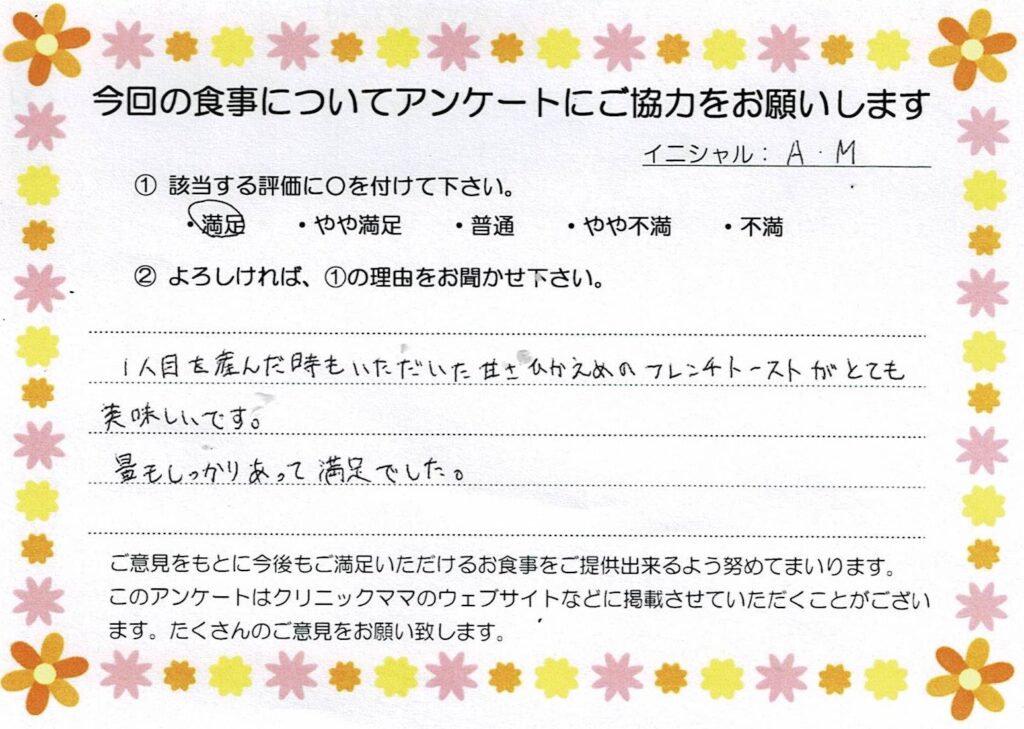 今回の食事についてアンケートにご協力をお願いします
イニシャル： A．M
① 該当する評価に○を付けて下さい。
・満足 ・やや満足 ・普通 ・やや不満 ・不満
② よろしければ、①の理由をお聞かせ下さい。
1人目を産んだ時もいただいた甘さひかえめのフレンチトーストがとても
美味しいです。
量もしっかりあって満足でした。
ご意見をもとに今後もご満足いただけるお食事をご提供出来るよう努めてまいります。
このアンケートはクリニックママのウェブサイトなどに掲載させていただくことがござい
ます。たくさんのご意見をお願い致します。